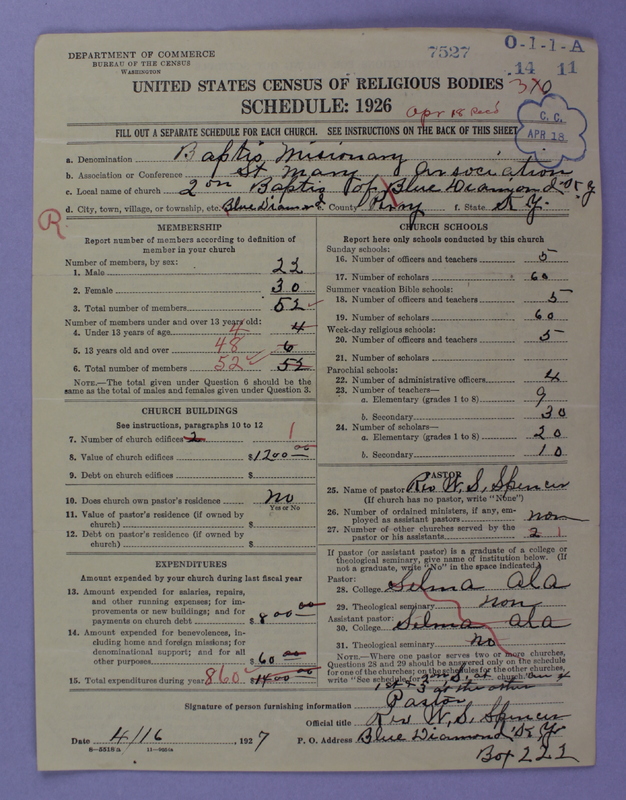 DEPARTMENT OF COMMERCE
BUREAU OF THE CENSUS
WASHINGTON
7527
O-1-1-A
14 11
UNITED STATES CENSUS OF RELIGIOUS BODIES
370
SCHEDULE: 1926
Apr 18 Recd
C. C.
APR 18
FILL OUT A SEPARATE SCHEDULE FOR EACH CHURCH. SEE INSTRUCTIONS ON THE BACK OF THIS SHEET
a. Denomination Baptis, Misionary
b. Association or Conference St Mary Association
c. Local name of church 2 on Baptis of Blue Diamond Ky
d. City, town, village, or township, etc. Blue Diamond e. County Perry f. State Ky.
R
MEMBERSHIP
Report number of members according to definition of
member in your church
Number of members, by sex:
1. Male 22
2. Female 30
3. Total number of members 52
Number of members under and over 13 years old:
4. Under 13 years of age 4 4
5. 13 years old and over 48 6
6. Total number of members 52 52
NOTE.—The total given under Question 6 should be the
same as the total of males and females given under Question 3.
CHURCH BUILDINGS
See instructions, paragraphs 10 to 12
7. Number of church edifices 2 1
8. Value of church edifices $1200 00
9. Debt on church edifices $
10. Does church own pastor's residence no
Yes or No
11. Value of pastor's residence (if owned by
church) $
12. Debt on pastor's residence (if owned by
church) $
EXPENDITURES
Amount expended by your church during last fiscal year
13. Amount expended for salaries, repairs,
and other running expenses; for im-
provements or new buildings; and for
payments on church debt $800 00
14. Amount expended for benevolences, in-
cluding home and foreign missions; for
denominational support; and for all
other purposes $60 00
15. Total expenditures during year 860 $1400 00
CHURCH SCHOOLS
Report here only schools conducted by this church
Sunday schools:
16. Number of officers and teachers 5
17. Number of scholars 60
Summer vacation Bible schools:
18. Number of officers and teachers 5
19. Number of scholars 60
Week-day religious schools:
20. Number of officers and teachers 5
21. Number of scholars
Parochial schools:
22. Number of administrative officers 4
23. Number of teachers—
a. Elementary (grades 1 to 8) 9
b. Secondary 30
24. Number of scholars—
a. Elementary (grades 1 to 8) 20
b. Secondary 10
PASTOR
25. Name of pastor Rev W. S. Spencer
(If church has no pastor, write "None")
26. Number of ordained ministers, if any, em-
ployed as assistant pastors non
27. Number of other churches served by the
pastor or his assistants 2 1
If pastor (or assistant pastor) is a graduate of a college or
theological seminary, give name of institution below. (If
not a graduate, write "No" in the space indicated)
Pastor:
28. College Selma Ala
29. Theological seminary non
Assistant pastor:
30. College Selma Ala
31. Theological seminary no
NOTE.—Where one pastor serves two or more churches,
Questions 28 and 29 should be answered only on the schedule
for one of the churches; on the schedules for the other churches,
write "See schedule for church."
1st & 2nd S. at one &
3 at the other
Signature of person furnishing information Pastor
Official title Rev W. S. Spencer
Date 4/16, 1927 P. O. Address Blue Diamond Ky
8—5518 a
Box 221